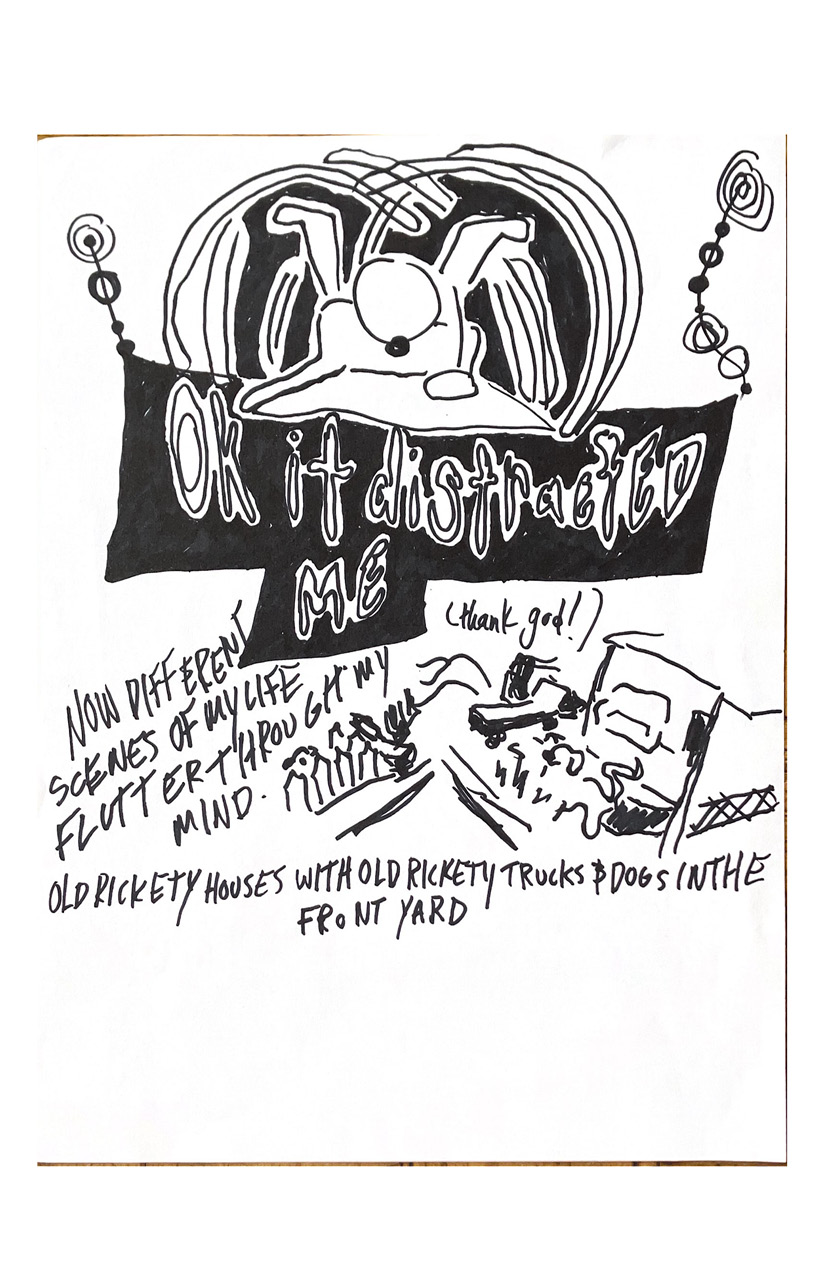 OK it distracted
ME
(thank god!)
NOW DIFFERENT
SCENES OF MY LIFE
FLUTTER THROUGH MY
MIND.
OLD RICKETY HOUSES WITH OLD RICKETY TRUCKS & DOGS IN THE
FRONT YARD